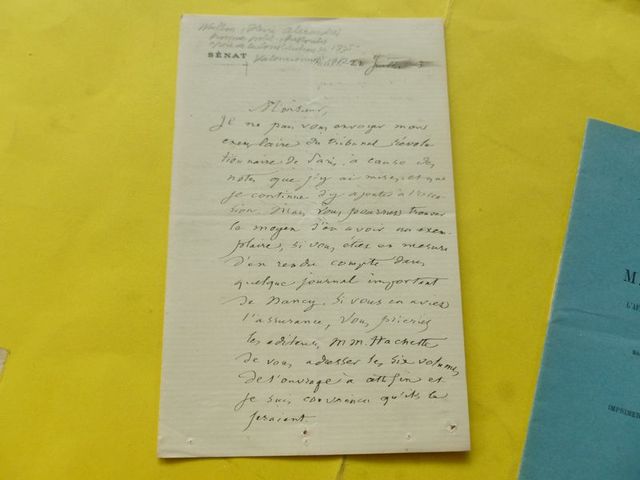 Wallon, Henri Alexandre
homme polit.
père de la Constitution de 1875
Valenciennes
SÉNAT
22 Juillet
Monsieur,
Je ne puis vous envoyer mon
exemplaire du Tribunal Révolu
tionnaire de Paris, à cause des
notes que j'y ai mises et que
je continue d'y ajouter à l'occa
sion. Mais vous pourriez trouver
le moyen d'en avoir un exem-
plaire, si vous étiez en mesure
d'en rendre compte dans
quelque journal important
de Nancy. Si vous en aviez
l'assurance, vous prieriez
les éditeurs, MM. Hachette
de vous adresser les six volumes
de l'ouvrage à cette fin et
je suis convaincu qu'ils le
feraient.
M
L'A
IMPRIMER